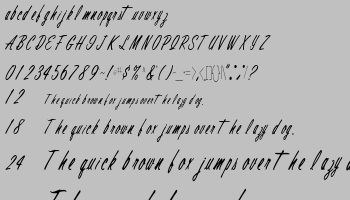 abcdefghijklmnopqrst uvwxyz
ABCDEFGHIJKLMNOPQRSTUVWXYZ
0123456789
12 The quick brown fox jumps over the lazy dog.
18 The quick brown fox jumps over the lazy dog.
24 The quick brown fox jumps over the lazy